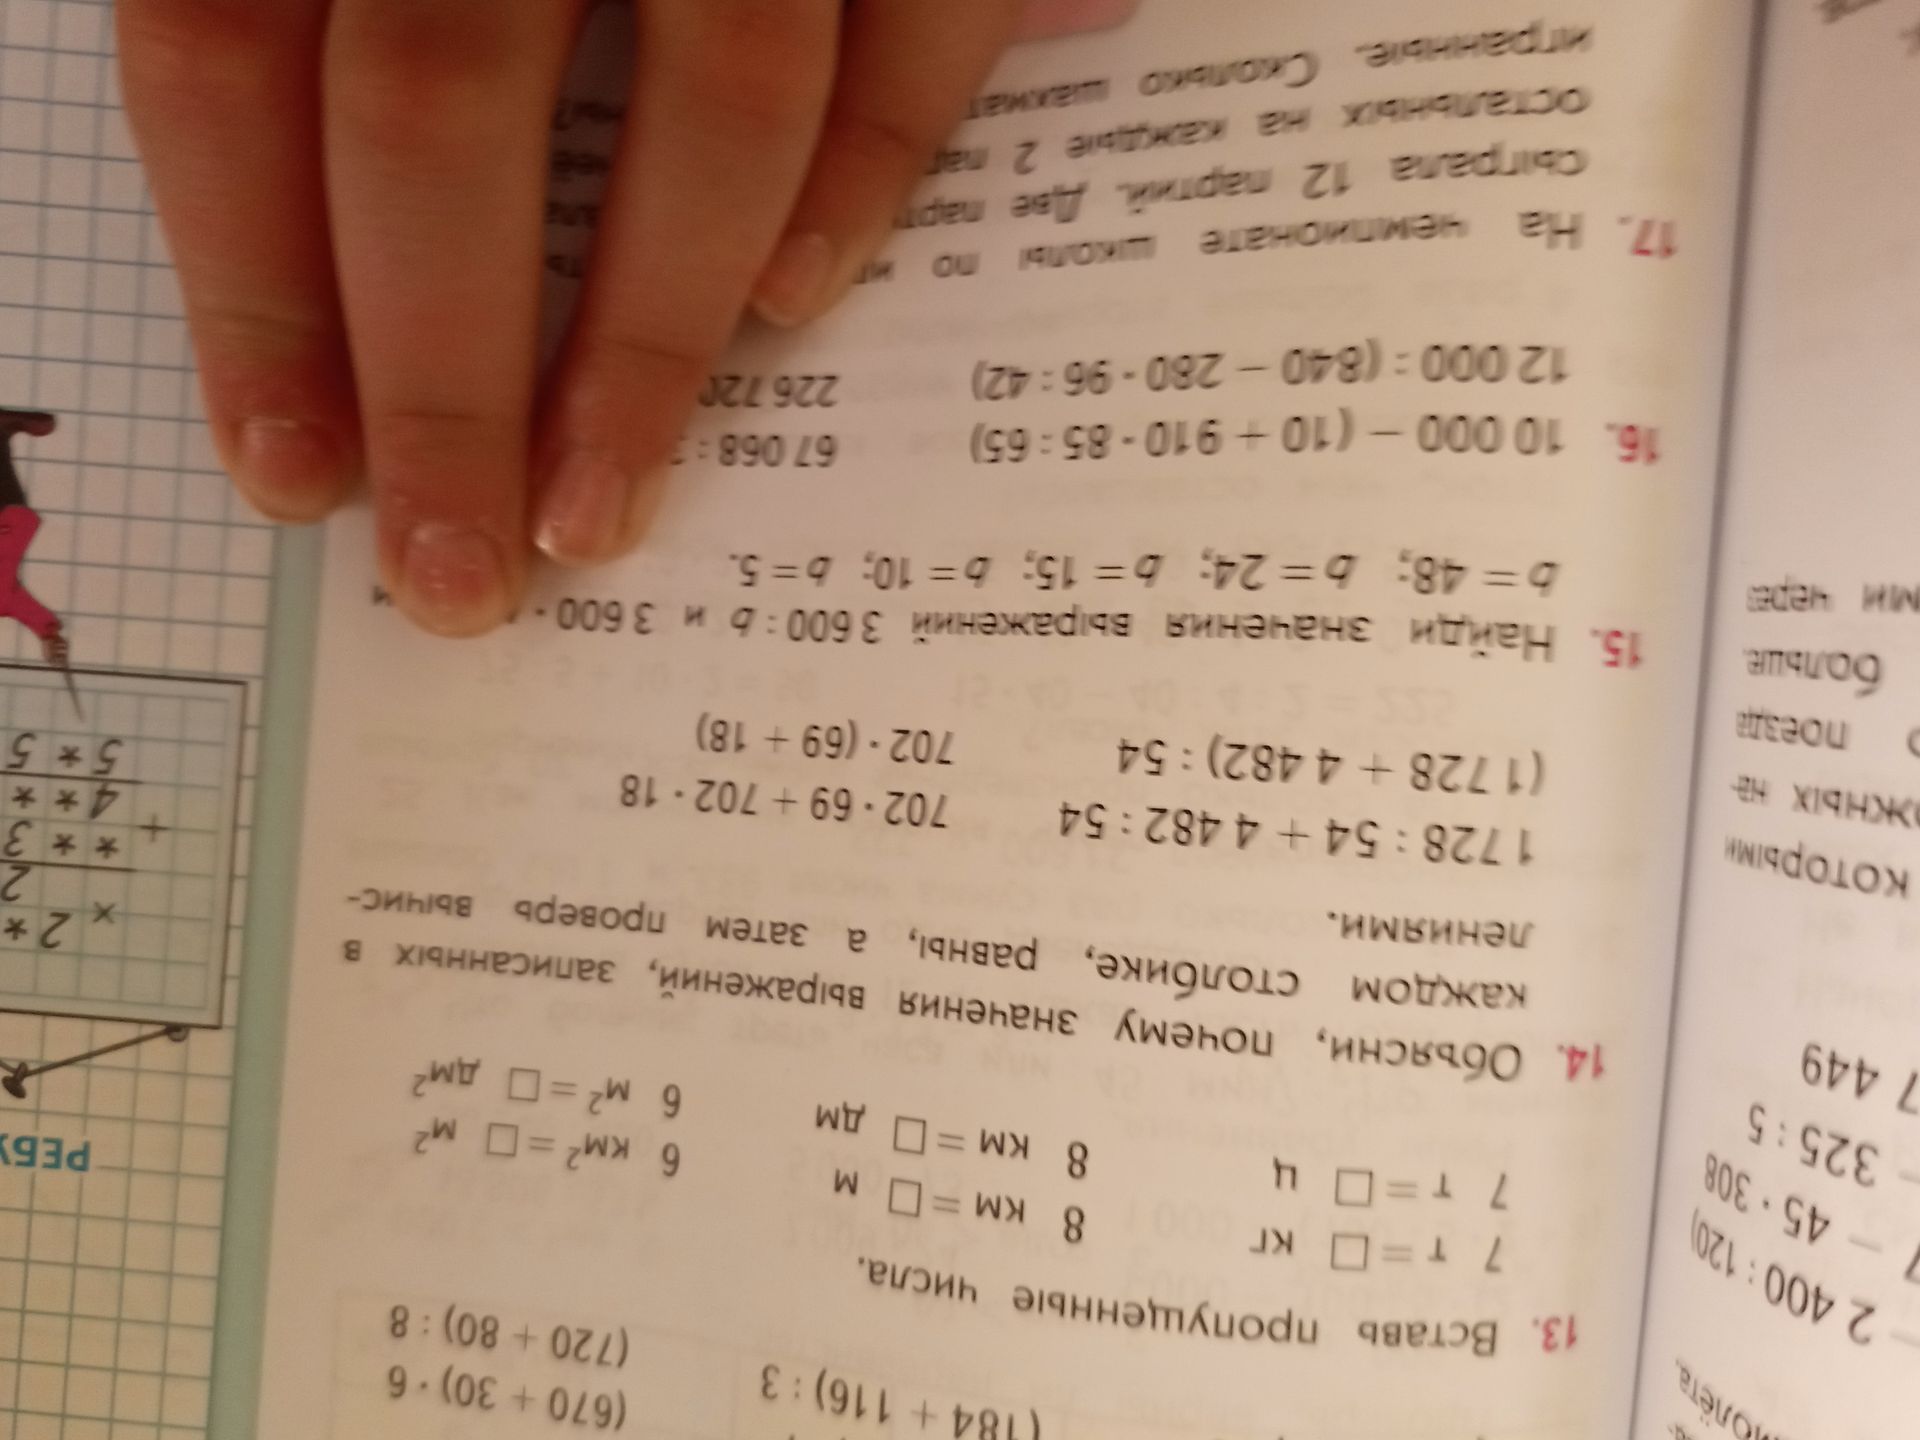 2 400 : 120)
45 · 308
325 : 5
7 449
которыми
больше.
поезда
ми через
(184 + 116) : 3
(670 + 30) · 6
(720 + 80) : 8
13. Вставь пропущенные числа.
7 т = □ кг 8 км = □ м 6 км² = □ м²
7 т = □ ц 8 км = □ дм 6 м² = □ дм²
14. Объясни, почему значения выражений, записанных в
каждом столбике, равны, а затем проверь вычис-
лениями.
1 728 : 54 + 4 482 : 54 702 · 69 + 702 · 18
(1 728 + 4 482) : 54 702 · (69 + 18)
15. Найди значения выражений 3 600 : b и 3 600 ·
b = 48; b = 24; b = 15; b = 10; b = 5.
16. 10 000 − (10 + 910 · 85 : 65) 67 068 :
12 000 : (840 − 280 · 96 : 42) 226 720
17. На чемпионате школы по
сыграла 12 партий. Две
остальных на каждые 2
игранные. Сколько
РЕБУ
× 2 *
2
+ * * 3
4 * *
5 * 5